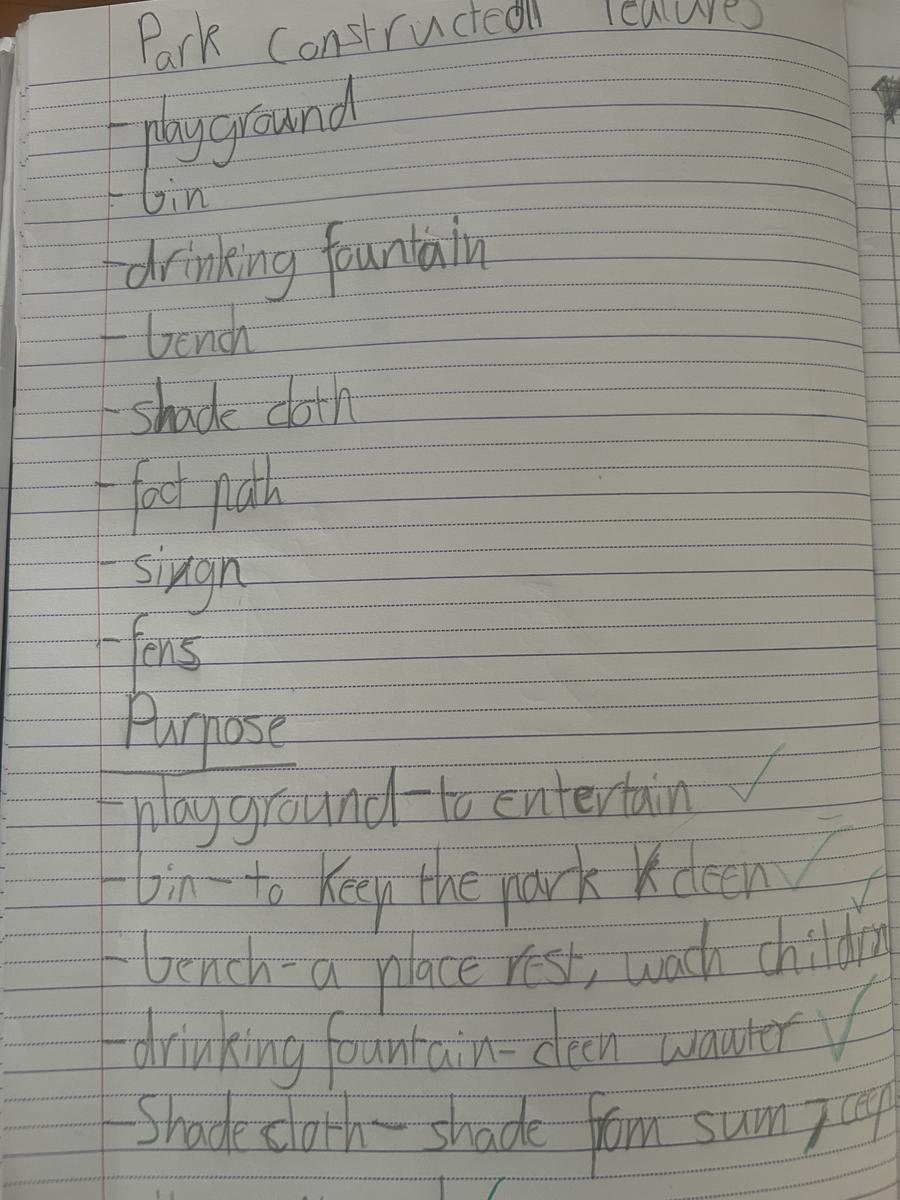 Park Constructed features
- playground
- bin
- drinking fountain
- bench
- shade cloth
- foot path
- singn
- fens
Purpose
- playground - to entertain
- bin - to keep the park cleen
- bench - a place rest, wach childrn
- drinking fountain - cleen wawter
- Shade cloth - shade from sum